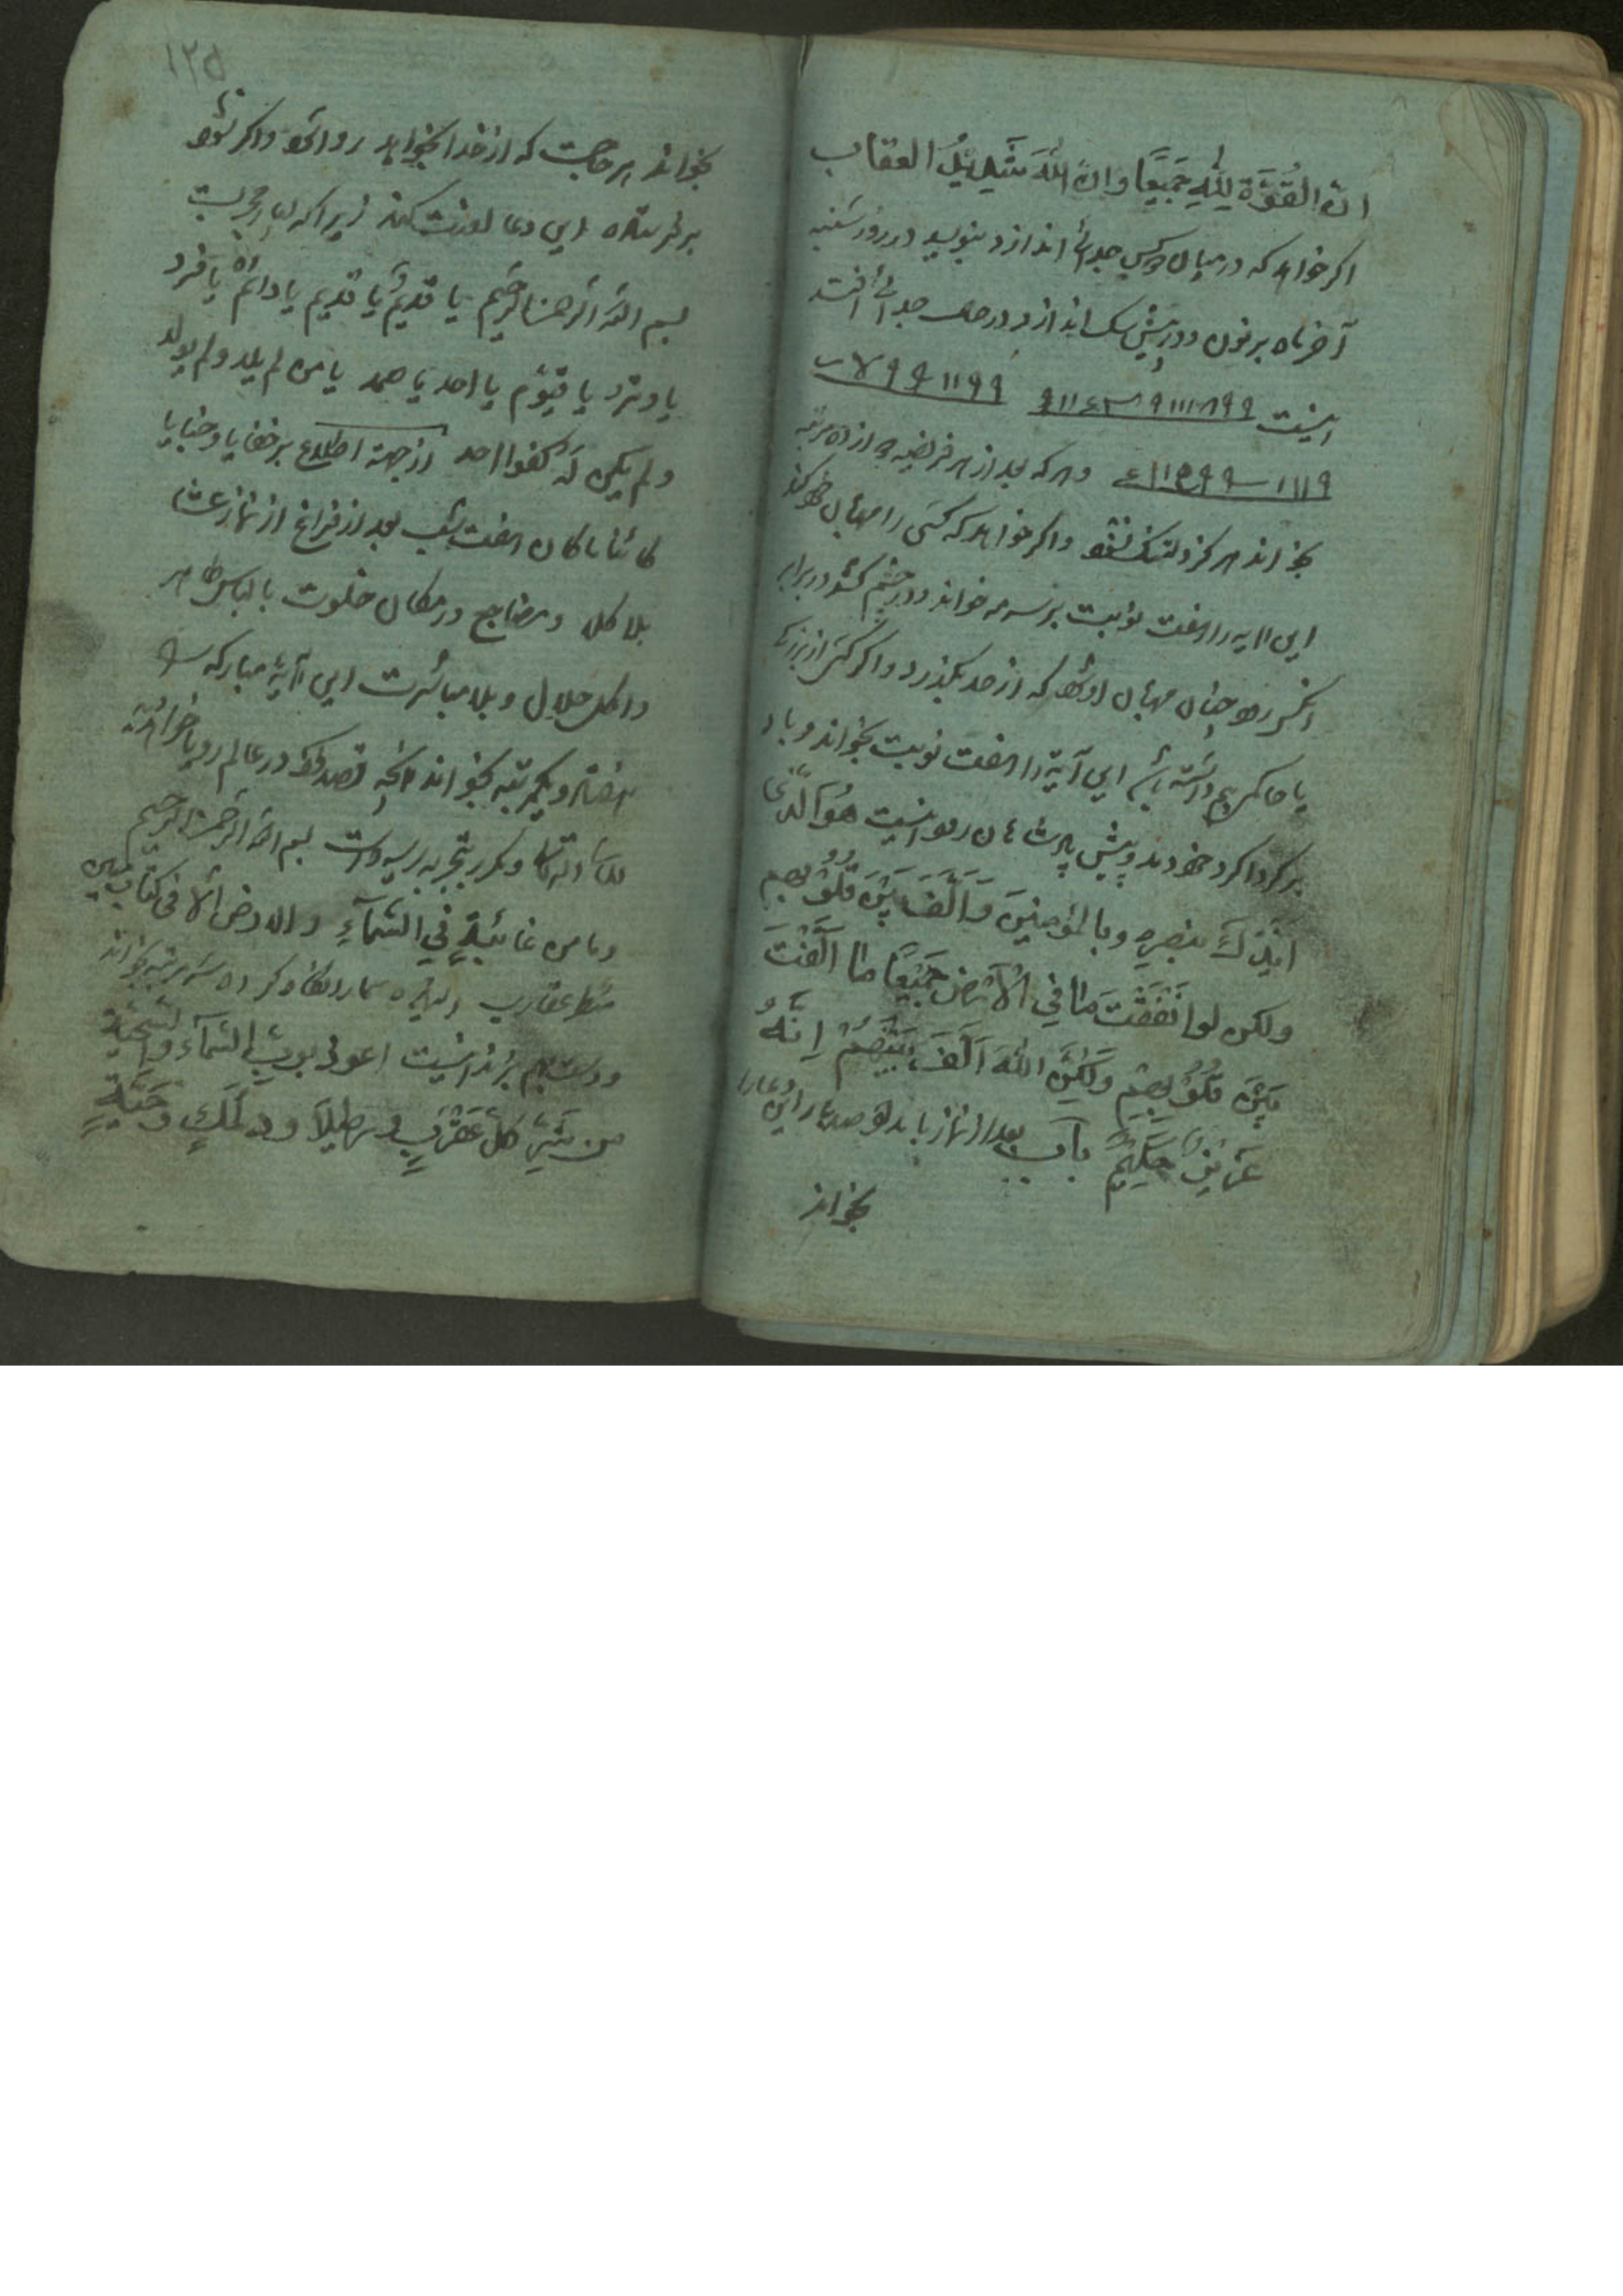 ان القُوَّة لِلّٰهِ جَمیعًا وَاِنَّ اللّٰهَ شَدیدُ العقاب
اکر خواهد که در میان دو کس جدائی اندازد بنویسد در روز شنبه
آخر ماه بر نون و در پیش سک اندازد در حال جدائی افتد
اینست
وهر که بعد از هر فریضه ده مرتبه
بخواند هرکز دلتنک نشود واکر خواهد که کسی را مهربان خود کند
این آیه را هفت نوبت بر سرمه خواند و در چشم کشد و در برابر
انکس رود چنان مهربان او شود که از حد بکذرد و اکر کسی از بزرکی
یا حاکمی بیم داشته باشد این آیة را هفت نوبت بخواند و باد
بر کرداکرد خود دمد و پیش پادشاهان رود اینست هُوَ الَّذی
اَیَّدَكَ بنصرِهِ وبالمؤمنینَ وَاَلَّفَ بَیْنَ قُلُوبِهِم
ولکن لو انفَقْتَ مٰا فِی الْاَرْضِ جَمیعًا مٰا اَلَّفْتَ
بَیْنَ قُلُوبِهِمْ وَلٰکِنَّ اللّٰهَ اَلَّفَ بَیْنَهُمْ اِنَّهُ
عَزیزٌ حَکیمٌ باب بعد از نماز بامداد این دعا را
بخواند
۱۲۵
بخواند هر حاجت که از خدا بخواهد روا شود واکر نشود
بر نویسنده این دعا لعنت کند زیرا که بسیار مجربست
بسم الله الرحمن الرحیم یا قدیمُ یا قدیم یا دائمُ یا فرد
یا وترُ یا قیّوم یا احد یا صمد یا من لم یلد ولم یولد
ولم یکن لَهُ کفوا احد از جهة اطلاع بر خفایا وخبایا
کائنا ما کان هفت شب بعد از فراغ از نماز عشا
بلا کلام ومضاجع در مکان خلوت با لباس طاهر
واکل حلال وبلا مباشرت این آیۀ مبارکه را
هفتاد ویکمرتبه بخواند انچه قصد کند در عالم رویا خواهد دید
انشاء الله تعالی ومکرر بتجربه رسیده است بسم الله الرحمن الرحیم
وما من غائبةٍ فی السَّمآءِ والارض الّا فی کتاب مبین
عقارب
ودست بهم بزند اینست اعوذ بربِّ السَّمآء
من شَرِّ کلّ عَقْرَبٍ وَحَیَّةٍ